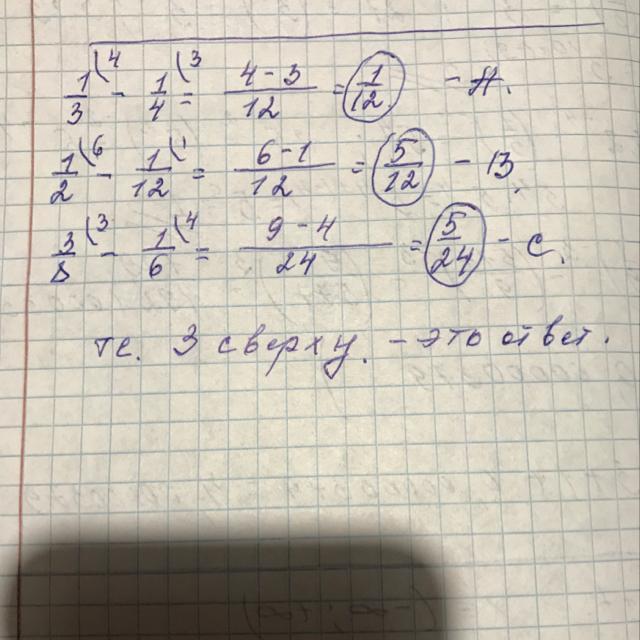 1/3 (4 - 1/4 (3 = 4-3/12 = 1/12 - А.
1/2 (6 - 1/12 (1 = 6-1/12 = 5/12 - В.
3/8 (3 - 1/6 (4 = 9-4/24 = 5/24 - С.
те. 3 сверху. - это ответ.